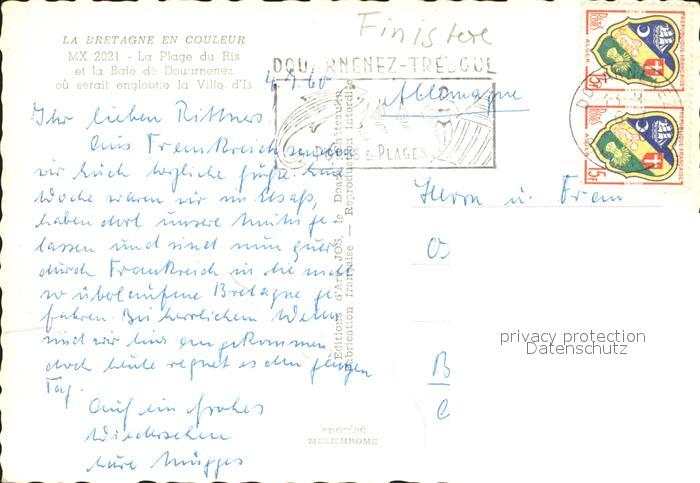 LA BRETAGNE EN COULEUR
MX 2021 - La Plage du Ris
et la Baie de Douarnenez
où serait engloutie la Ville d'Is
Finistere
DOUARNENEZ-TRÉBOUL
4.9.60
Allemagne
PORTS & PLAGES
Ihr lieben Rittners.
Aus Frankreich senden
wir Euch herzliche Grüße. Eine
Woche waren wir im Elsaß,
haben dort unsere Muttis ge-
lassen und sind nun quer
durch Frankreich in die nicht
so überlaufene Bretagne ge-
fahren. Bei herrlichem Wetter
sind wir hier angekommen
doch heute regnet es den ganzen
Tag.
Auf ein frohes
Wiedersehen
Eure Müggés
Editions d'Art JOS, le Doaré, Châteaulin
Fabrication française — Reproduction interdite
PROCÉDÉ
MEXICHROME
Herrn u. Frau
O
B
C
privacy protection
Datenschutz
POSTES
RÉPUBLIQUE FRANÇAISE
ALGER
5F
POSTES
RÉPUBLIQUE FRANÇAISE
ALGER
5F